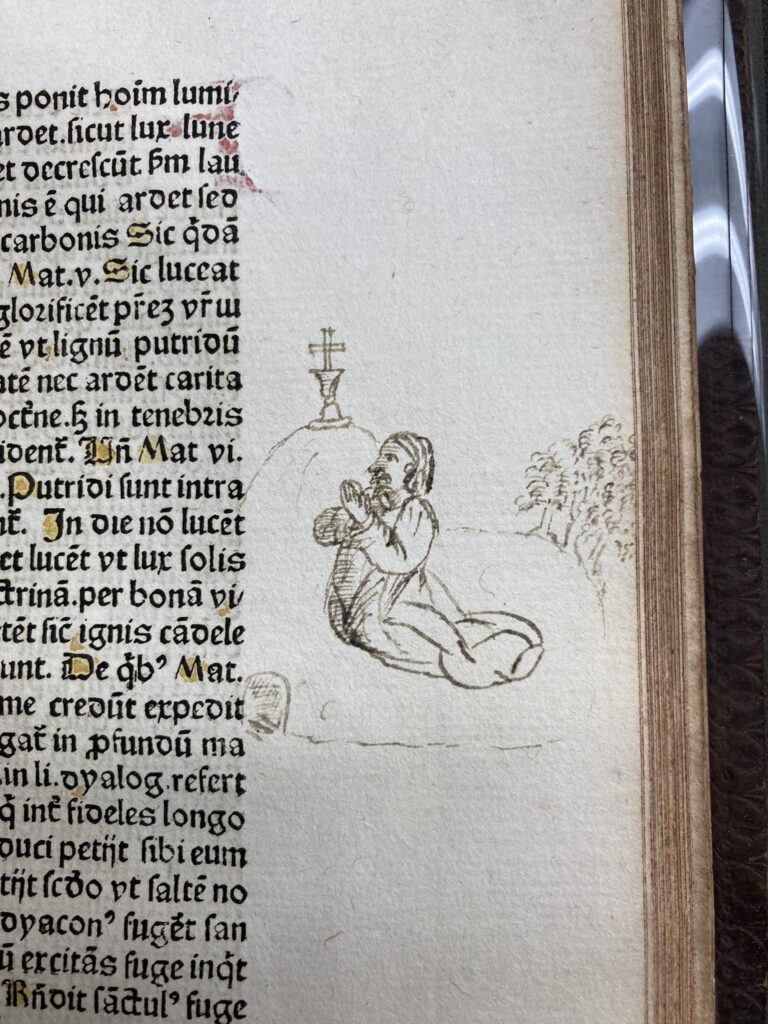 s ponit hoīm lumi/
ardet.sicut lux lune
et decrescūt ꝑm lau
nis ē qui ardet sed
carbonis Sic q̄dā
Mat.v.Sic luceat
glorificēt pr̄eꝫ vr̄m
ē vt lignū putridū
atē nec ardēt carita
octr̄ne.ꝧ in tenebris
ident̄. Un̄ Mat vi.
.Putridi sunt intra
nt̄. In die nō lucēt
et lucēt vt lux solis
ctrinā.per bonā vi/
tēt sic̄ ignis cādele
unt. De q̄bꝰ Mat.
me credūt expedit
gat̄ in ꝓfundū ma
in li.dyalog.refert
q̄ int̄ fideles longo
duci petijt sibi eum
tijt scd̄o vt saltē no
dyaconꝰ fugēt san
ū excitās fuge inq̄t
Rn̄dit sāctulꝰ fuge